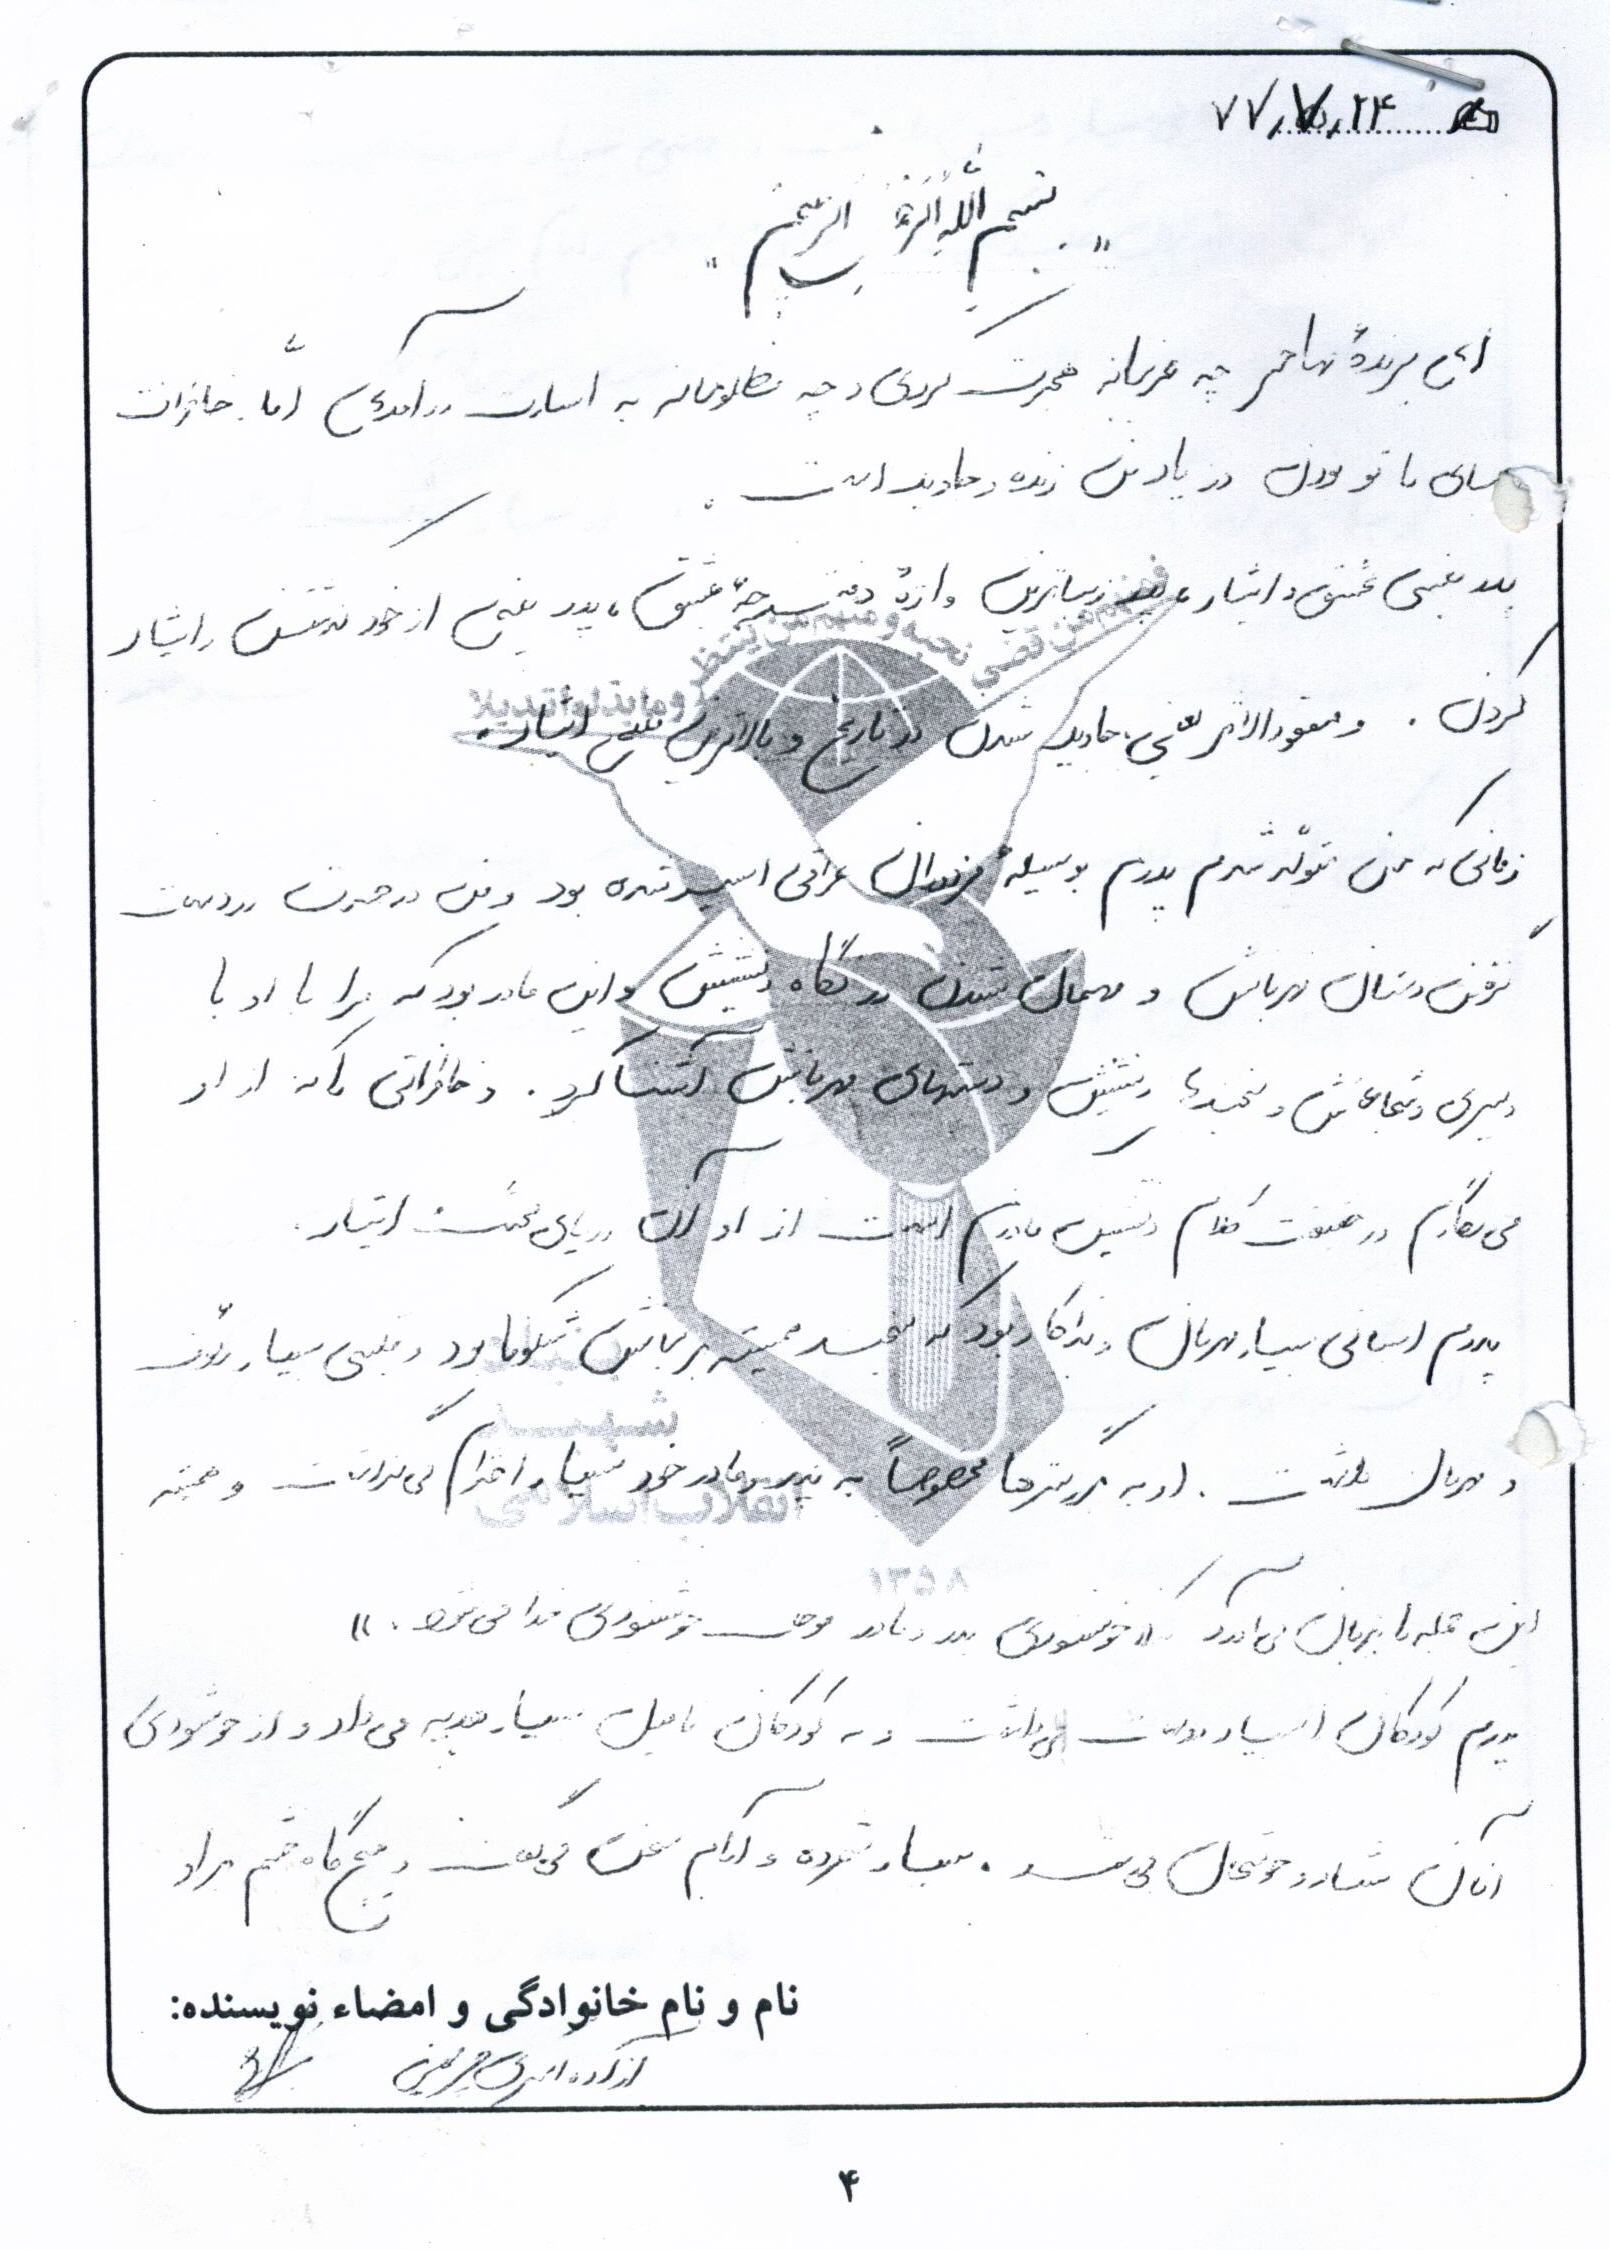 ۷۷/۷/۲۴
« بسم الله الرحمن الرحیم »
ای پرندهٔ مهاجر چه غریبانه هجرت کردی و چه مظلومانه به اسارت درآمدی امّا خاطرات
با تو بودن در یاد من زنده و جاوید است .
پدر یعنی عشق و ایثار ، پدر زیباترین واژهٔ دفترچهٔ عشق ، پدر یعنی از خود گذشتن و ایثار
کردن . و مفقودالاثر یعنی جاوید شدن در تاریخ و بالاترین ایثار .
زمانی که من متولّد شدم پدرم بوسیلهٔ مزدوران عراقی اسیر شده بود و من در حسرت در دست
گرفتن دستان مهربانش و مهمان شدن در نگاه دلنشینش و این مادر بود که مرا با او با
دلیری و شجاعتش و لبخندهٔ دلنشینش و دستهای مهربانش آشنا کرد . و خاطراتی را که از او
می نگارم در حقیقت کلام دلنشین مادرم است از او آن دریای محبت و ایثار .
پدرم انسانی بسیار مهربان و فداکار بود که لبخند همیشه بر لبانش شکوفا بود و قلبی بسیار رئوف
و مهربان داشت . او به بزرگترها مخصوصاً به پدر و مادر خود بسیار احترام می گذاشت و همیشه
این جمله را بر زبان می آورد که « خوشنودی پدر و مادر موجب خوشنودی خدا می شود . »
پدرم کودکان را بسیار دوست می داشت و به کودکان فامیل بسیار هدیه می داد و از خوشنودی
آنان شاد و خوشحال می شد . بسیار شمرده و آرام سخن می گفت و هیچ گاه خشم بر او
نام و نام خانوادگی و امضاء نویسنده:
فمنهم من قضی نحبه و منهم من ینتظر و ما بدلوا تبدیلا
بنیاد
شهید
انقلاب اسلامی
۱۳۵۸
۴